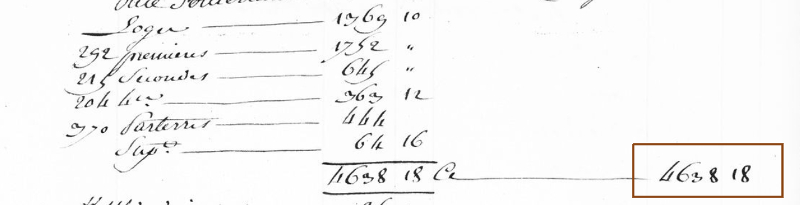 Loges 1369 10
292 premieres 1752 "
215 Secondes 645 "
363 12
370 Parterres 444
Sup.ts 64 16
4638 18 Ci 4638 18